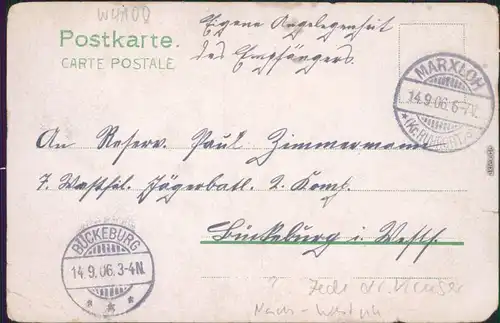 W4100
Postkarte.
CARTE POSTALE
Eigene Angelegenheit
des Empfängers.
MARXLOH
14.9.06.6-7N.
An Reserv. Paul Zimmermann
7. Westfäl. Jägerbatl. 2. Komp.
Bückeburg i. Westf.
BÜCKEBURG
14.9.06.3-4N.